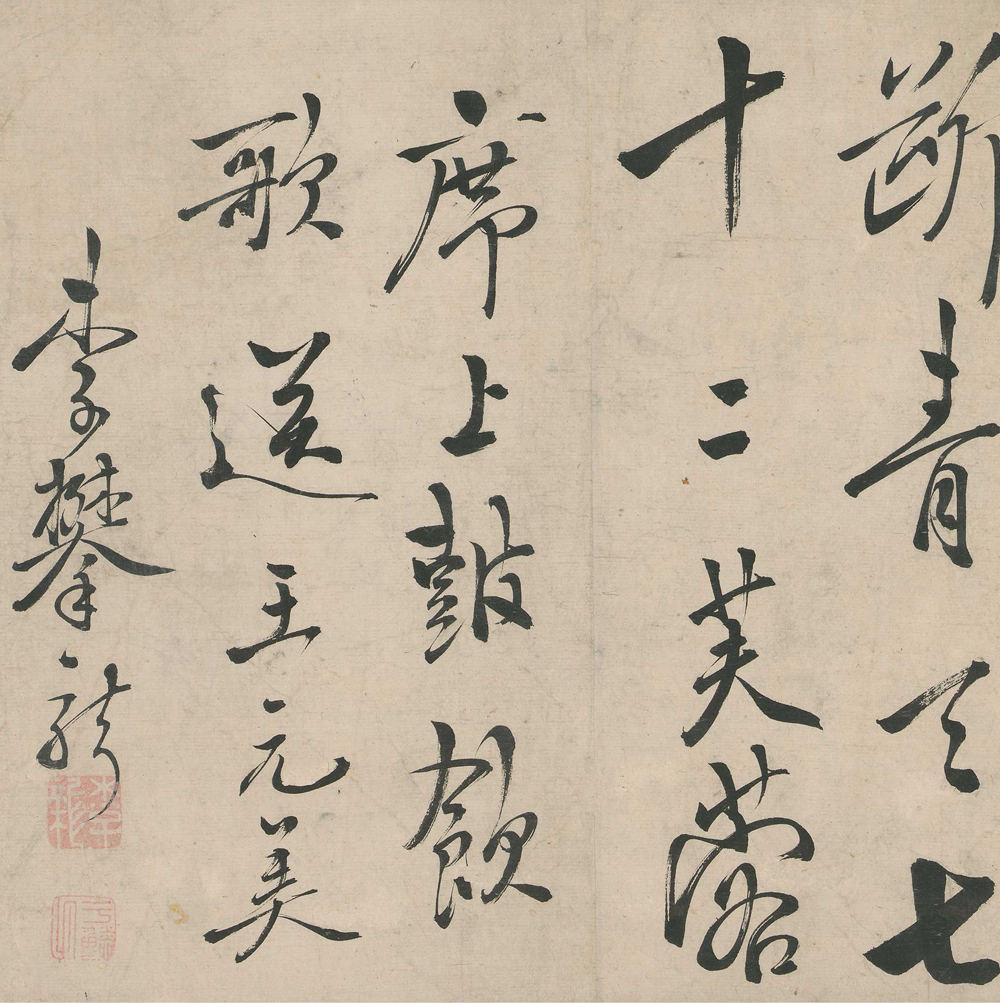 斷青天七
十二芙蓉
席上鼓飲
歌送王元美
李攀龍